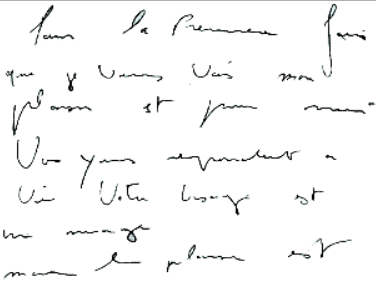 Pour la Premiere fois
que je vous vois mon
plaisir est pour moi
Vos yeux
Votre visage est
un
le plaisir est